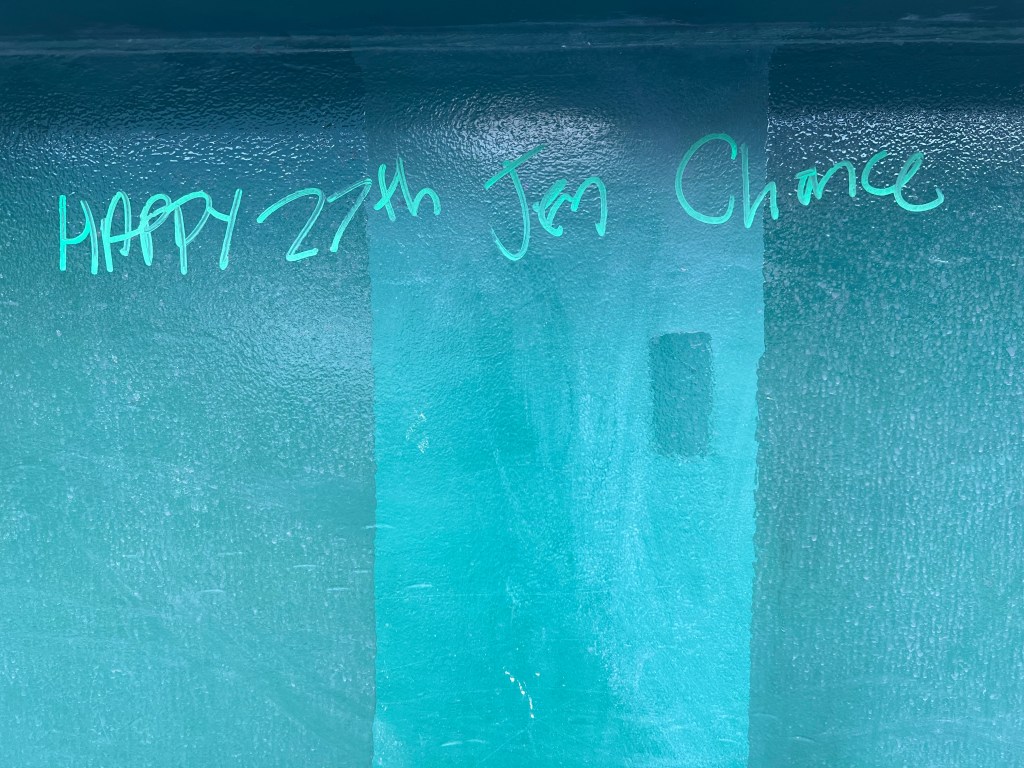 HAPPY 27th Jen Chance